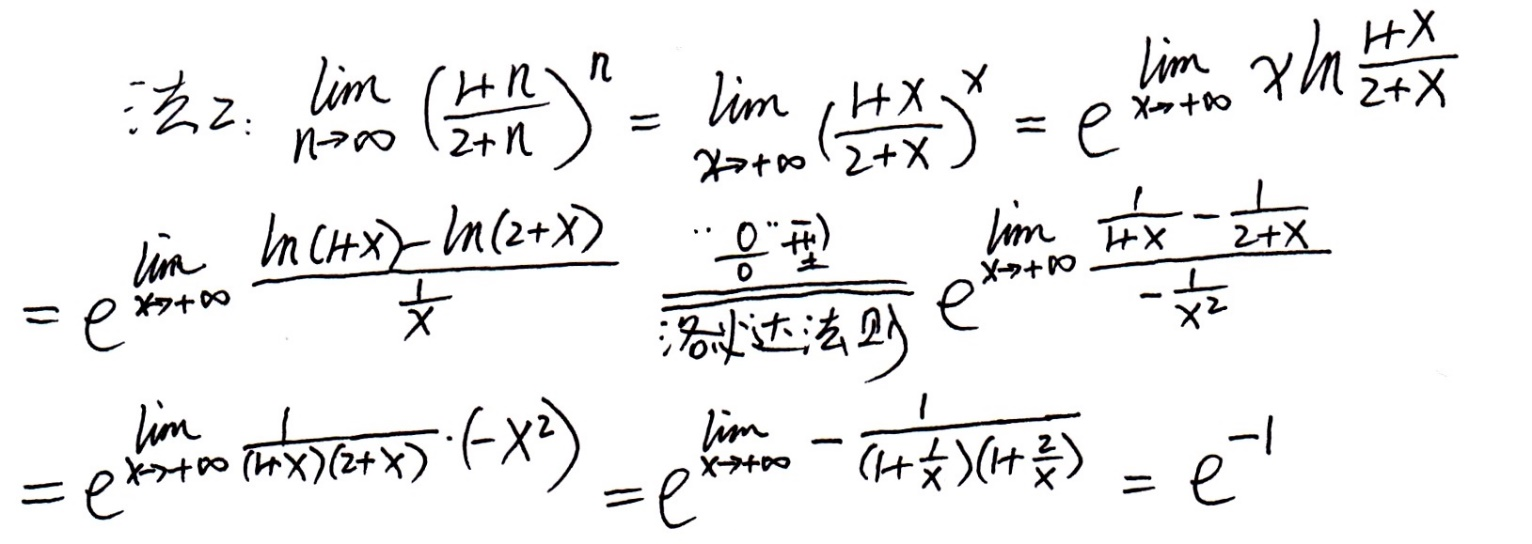 法2: $\lim_{n\to\infty}\left(\frac{1+n}{2+n}\right)^n = \lim_{x\to+\infty}\left(\frac{1+x}{2+x}\right)^x = e^{\lim_{x\to+\infty} x\ln\frac{1+x}{2+x}}$
$= e^{\lim_{x\to+\infty}\frac{\ln(1+x)-\ln(2+x)}{\frac{1}{x}}} \xlongequal[\text{洛必达法则}]{\text{“}\frac{0}{0}\text{”型}} e^{\lim_{x\to+\infty}\frac{\frac{1}{1+x}-\frac{1}{2+x}}{-\frac{1}{x^2}}}$
$= e^{\lim_{x\to+\infty}\frac{1}{(1+x)(2+x)}\cdot(-x^2)} = e^{\lim_{x\to+\infty}-\frac{1}{(1+\frac{1}{x})(1+\frac{2}{x})}} = e^{-1}$